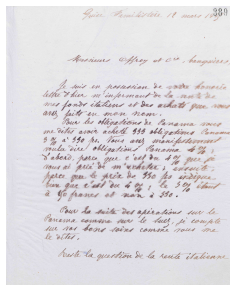 389
mars
Messieurs Offroy et Cie, banquiers,
Je suis en possession de votre honorée
lettre d'hier m'informant de la suite de
mes fonds italiens et des achats que vous
avez faits en mon nom.
Pour les obligations de Panama vous
me dites avoir acheté 333 obligations Panama
3% à 330 fr. Vous avez manifestement
voulu dire obligations Panama 4% ;
d'abord parce que c'est du 4% que je
vous ai prié de m'acheter ; ensuite,
parce que le prix de 330 fr. indique
bien que c'est du 4% ; le 3% étant
à francs et non à 330.
Pour la suite des opérations sur le
Panama comme sur le Suez, je compte
sur vos bons soins comme vous me
le dites.
Reste la question de la rente italienne.